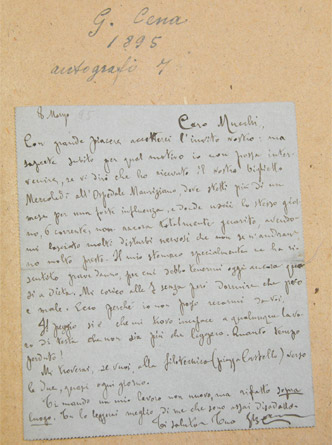 G. Cena
1895
autografi 7
8 Marzo 95
Caro Mucchi,
Con grande piacere accetterei l'invito vostro: ma
saprete subito per qual motivo io non possa inter-
venire, se vi dico che ho ricevuto il vostro biglietto
Mercoledì all'Ospedale Mauriziano, dove stetti più di un
mese per una forte influenza, e donde uscii lo stesso gior-
no, 6 corrente, non ancora totalmente guarito avendo-
mi lasciato molti disturbi nervosi che non se n'andran-
no molto presto. Il mio stomaco specialmente ne ha ri-
sentito grave danno, per cui debbo tenermi oggi ancora quasi
a dieta. Mi corico alle 7 senza però dormire che poco
e male. Ecco perché io non posso recarmi da voi.
Il peggio si è che mi trovo incapace a qualunque lavo-
ro di testa che non sia più che leggero. Quanto tempo
perduto!
Mi troverai, se vuoi, alla filotecnica (piazza Castello) verso
le due, quasi ogni giorno.
Ti mando un mio lavoro non nuovo, ma rifatto
luogo. Tu lo leggerai meglio di me che sono assai
Ti saluta il tuo